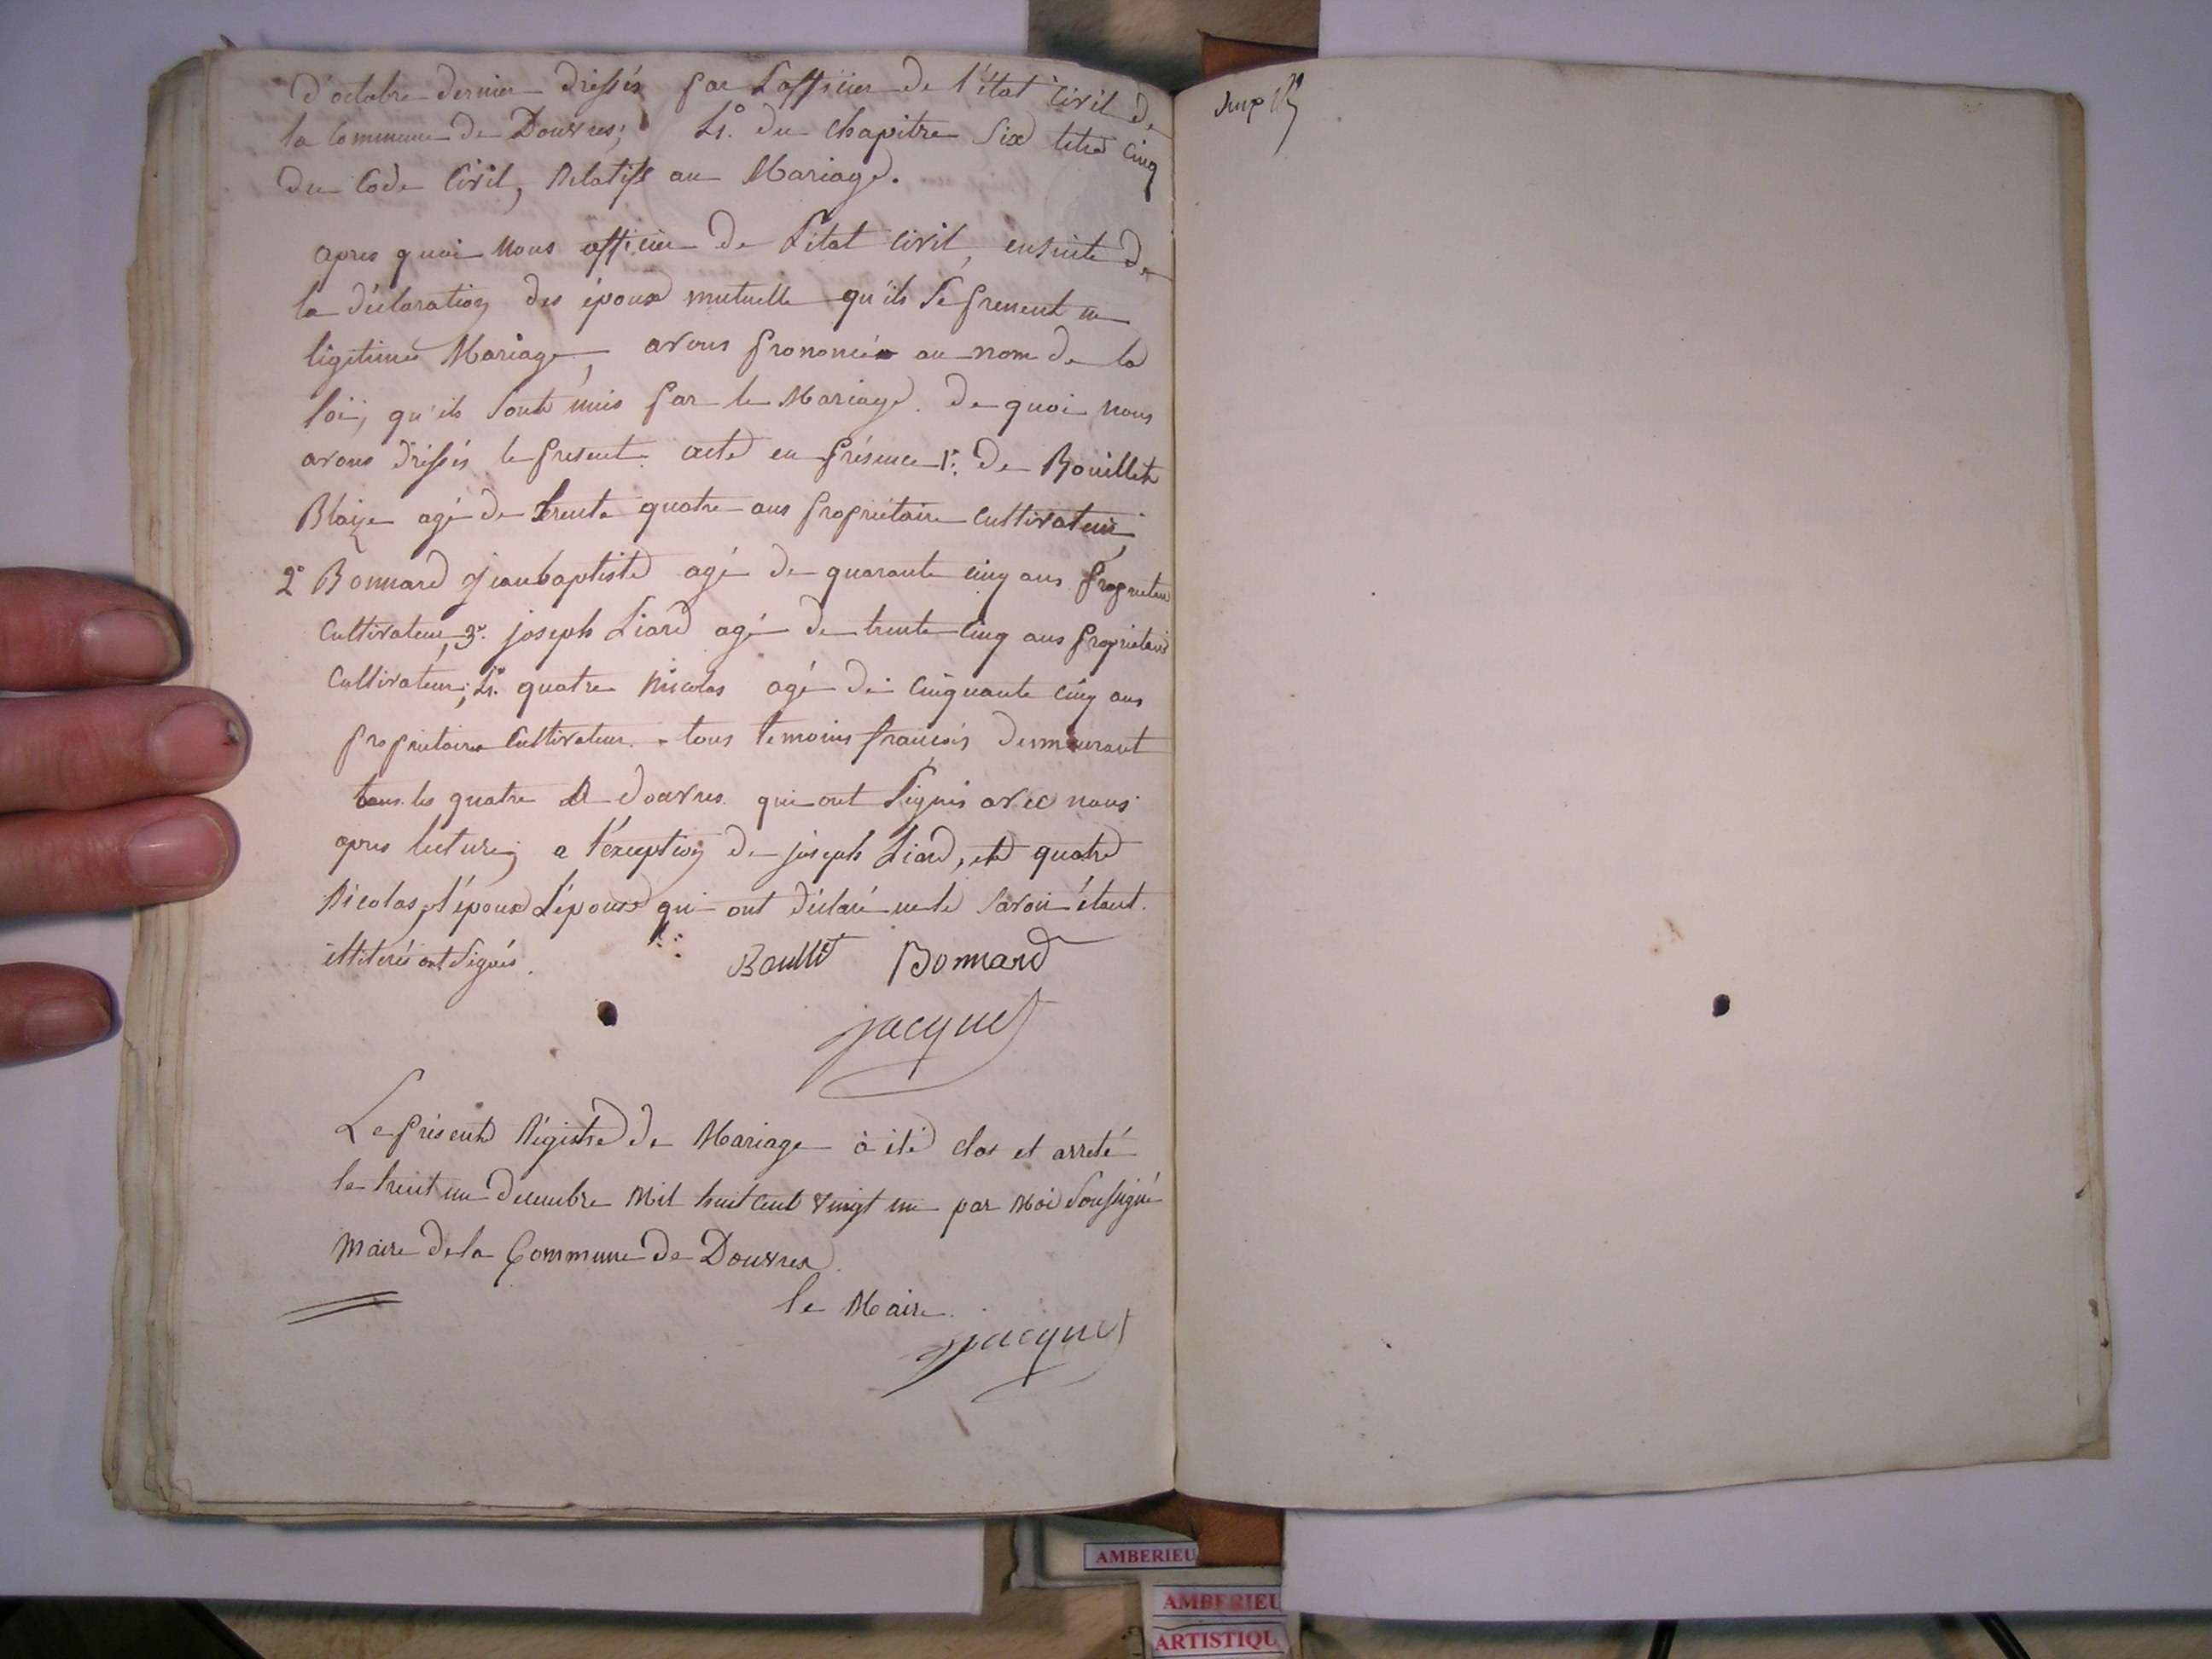 d'octobre dernier dressés par L'officier de l'état Civil de
la Commune de Douvres; 4°. du Chapitre Six titre cinq
du Code Civil, Relatifs au Mariage.
apres quoi Nous officier de L'état Civil, ensuite de
la déclaration des époux mutuelle qu'ils se prenent en
légitime Mariage, avons prononcé au nom de la
loi, qu'ils sont unis par le Mariage. de quoi nous
avons dressés le present acte en présence 1°. de Bouillet
Blaize agé de trente quatre ans propriétaire Cultivateur,
2° Bonnard jean baptiste agé de quarante cinq ans propriétaire
Cultivateur, 3°. joseph Liard agé de trente cinq ans propriétaire
Cultivateur; 4°. quatre Nicolas agé de Cinquante cinq ans
propriétaire Cultivateur. tous temoins françois demeurant
tous les quatre a douvres qui ont signés avec nous
apres lecture, a l'éxception de joseph Liard, et quatre
Nicolas, l'époux L'épouse qui ont déclaré ne le savoir étant
illiterés ont signés. Boullet Bonnard
jacquet
Le présent Régistre de Mariage à été clos et arreté
le trent un decembre Mil huit Cent vingt un par Moi Soussigné
Maire de la Commune de Douvres.
le Maire
jacquet
AMBERIEU
AMBERIEU
ARTISTIQU